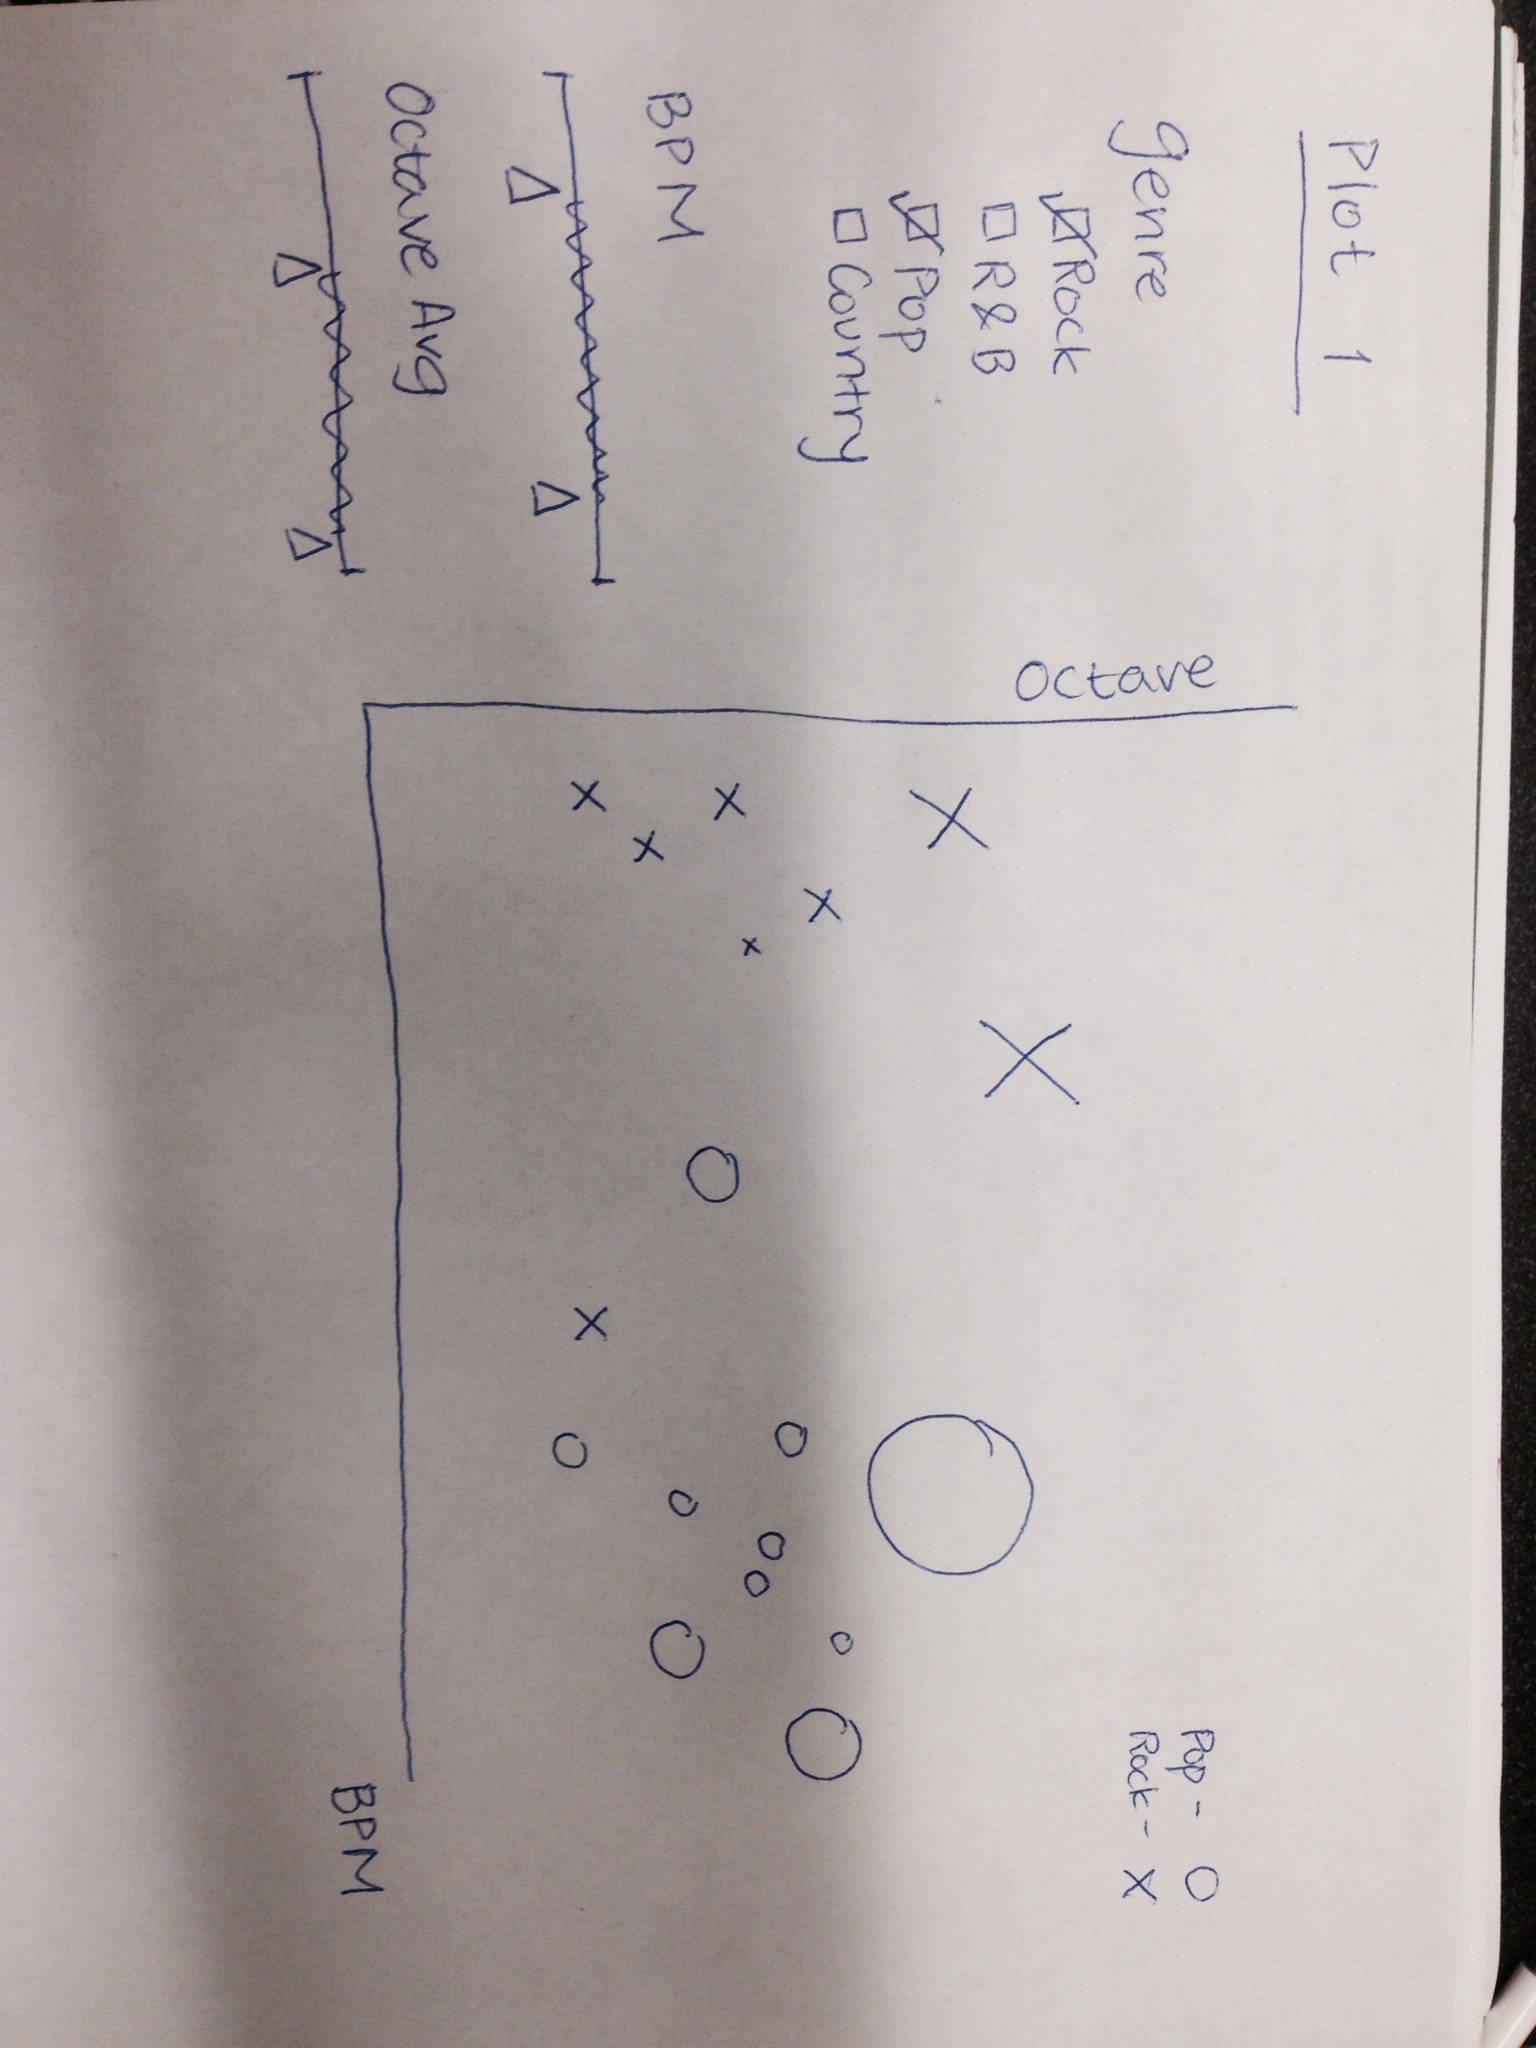 Plot 1
Genre
Rock
R&B
Pop
Country
BPM
Octave Avg
Octave
BPM
Pop - O
Rock - X